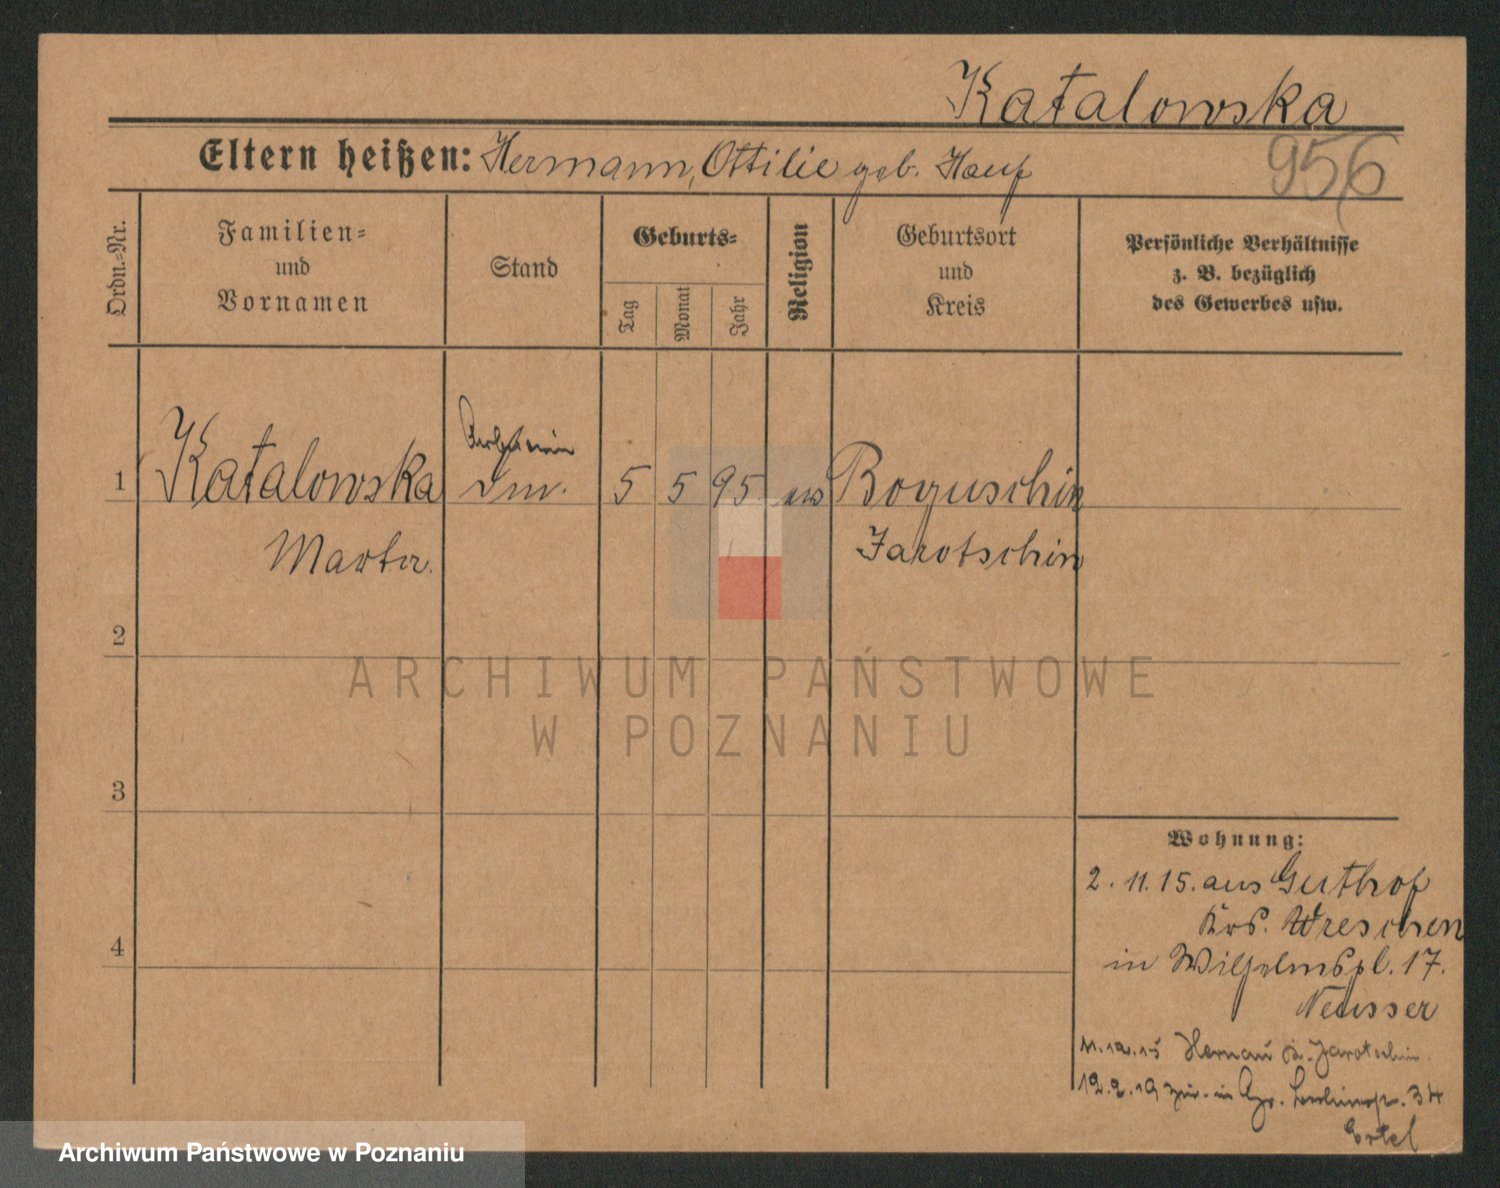 Katalowska
Eltern heißen: Hermann, Ottilie geb. Hauf
956
Ordn.-Nr.
Familien-
und
Vornamen
Stand
Geburts-
Tag
Monat
Jahr
Religion
Geburtsort
und
Kreis
Persönliche Verhältnisse
z. B. bezüglich
des Gewerbes usw.
Arbeiterin
1 Katalowska 5 5 95 ev Boguschin
Martha Jarotschin
2
ARCHIWUM PAŃSTWOWE
W POZNANIU
3
Wohnung:
2. 11. 15. aus Guthof
Krs. Wreschen
4
in Wilhelmspl. 17.
Neusser
11.12.15 Hernau Jarotschin
12.2.19 zur. in Gr. 34
Ertel
Archiwum Państwowe w Poznaniu